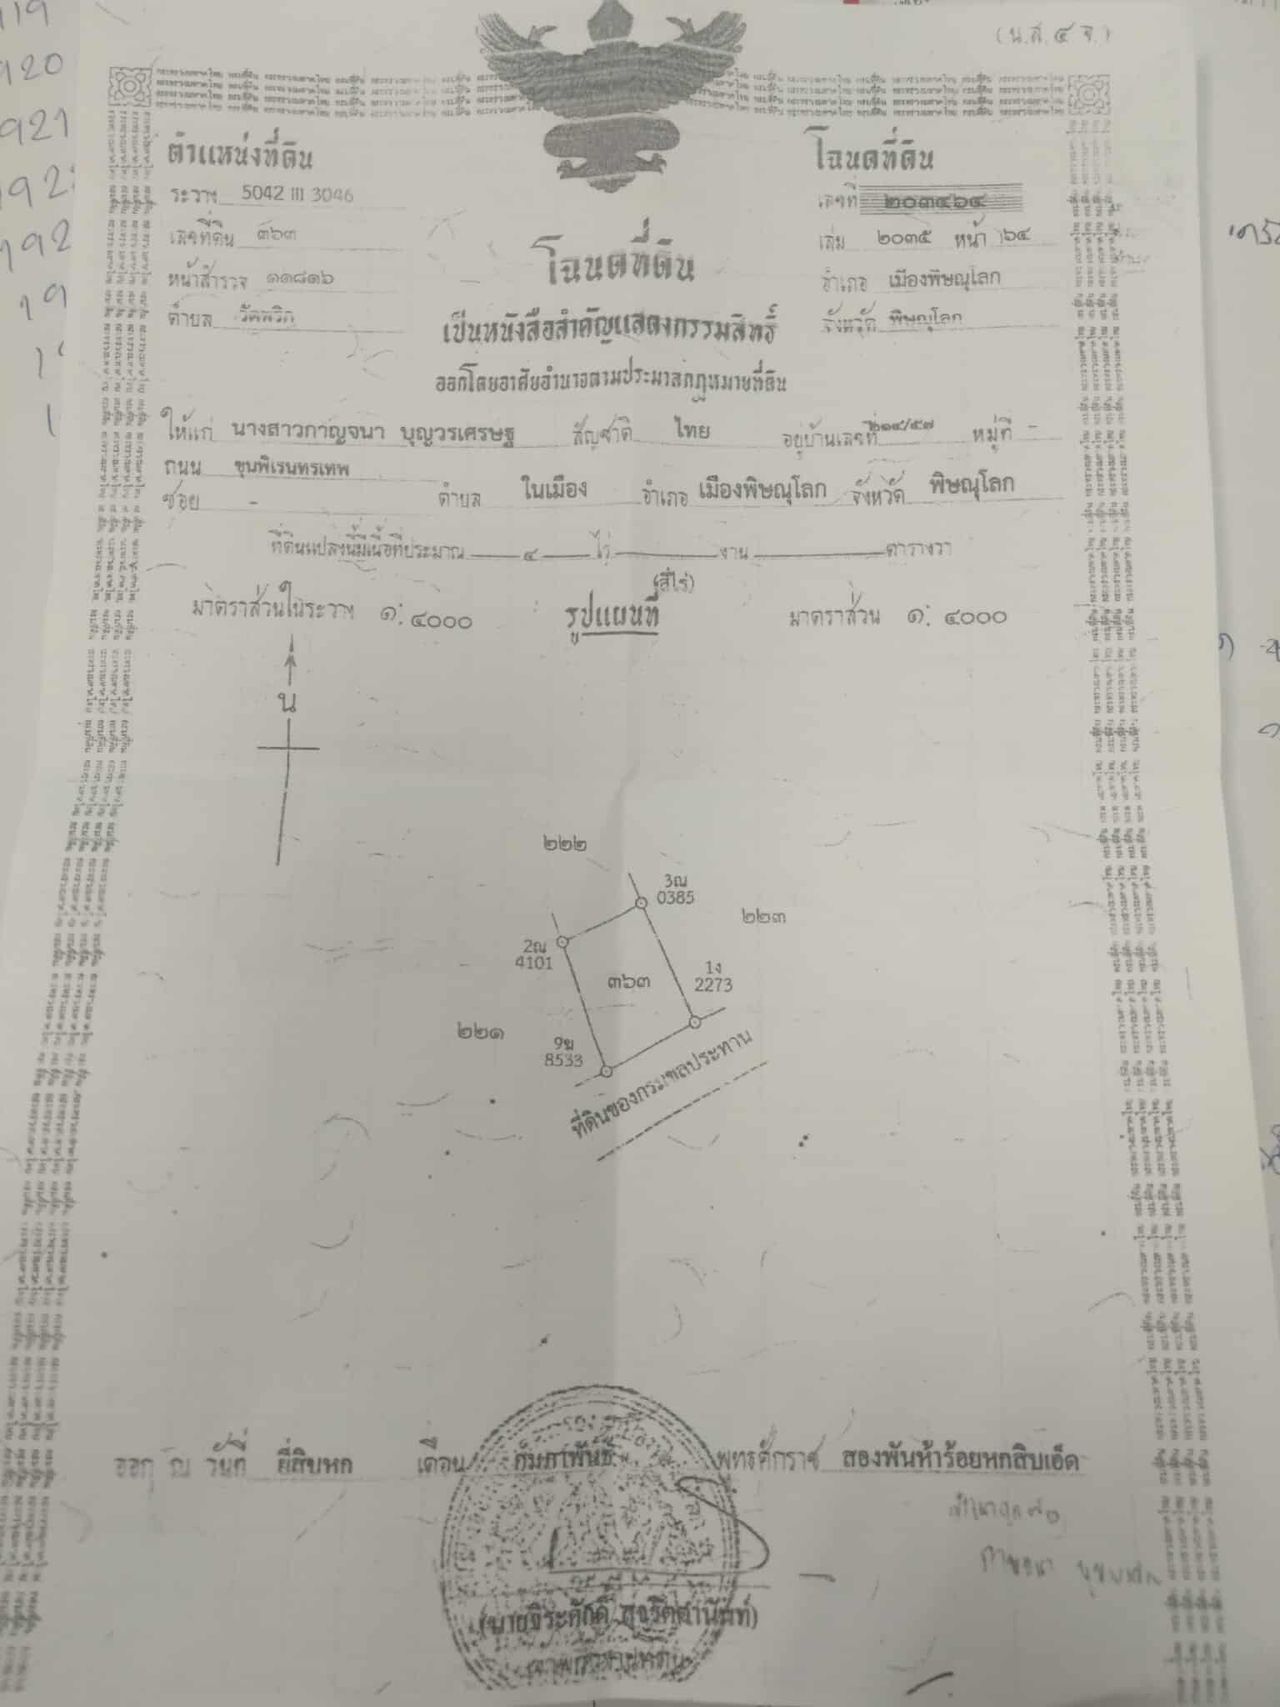 (น.ส. ๔ จ.)
ตำแหน่งที่ดิน
ระวาง 5042 III 3046
เลขที่ดิน ๓๖๓
หน้าสำรวจ ๑๑๘๑๖
ตำบล วัดพริก
โฉนดที่ดิน
เลขที่ ๒๐๓๔๖๔
เล่ม ๒๐๓๕ หน้า ๖๔
อำเภอ เมืองพิษณุโลก
จังหวัด พิษณุโลก
โฉนดที่ดิน
เป็นหนังสือสำคัญแสดงกรรมสิทธิ์
ออกโดยอาศัยอำนาจตามประมวลกฎหมายที่ดิน
ให้แก่ นางสาวกาญจนา บุญวรเศรษฐ สัญชาติ ไทย อยู่บ้านเลขที่ ๒๑๔/๕๗ หมู่ที่ -
ถนน ขุนพิเรนทรเทพ
ซอย - ตำบล ในเมือง อำเภอ เมืองพิษณุโลก จังหวัด พิษณุโลก
ที่ดินแปลงนี้มีเนื้อที่ประมาณ ๔ ไร่ งาน ตารางวา
(สี่ไร่)
มาตราส่วนในระวาง ๑: ๔๐๐๐ รูปแผนที่ มาตราส่วน ๑: ๔๐๐๐
น
๒๒๒
3ณ
0385
๒๒๓
2ณ
4101
๓๖๓
1ง
2273
๒๒๑
9ฆ
8533
ที่ดินของกรมชลประทาน
ออก ณ วันที่ ยี่สิบหก เดือน กุมภาพันธ์ พุทธศักราช สองพันห้าร้อยหกสิบเอ็ด
สำเนาถูกต้อง
(นายจิระศักดิ์ สุจริตตานันท์)
เจ้าพนักงานที่ดิน
919
920
921